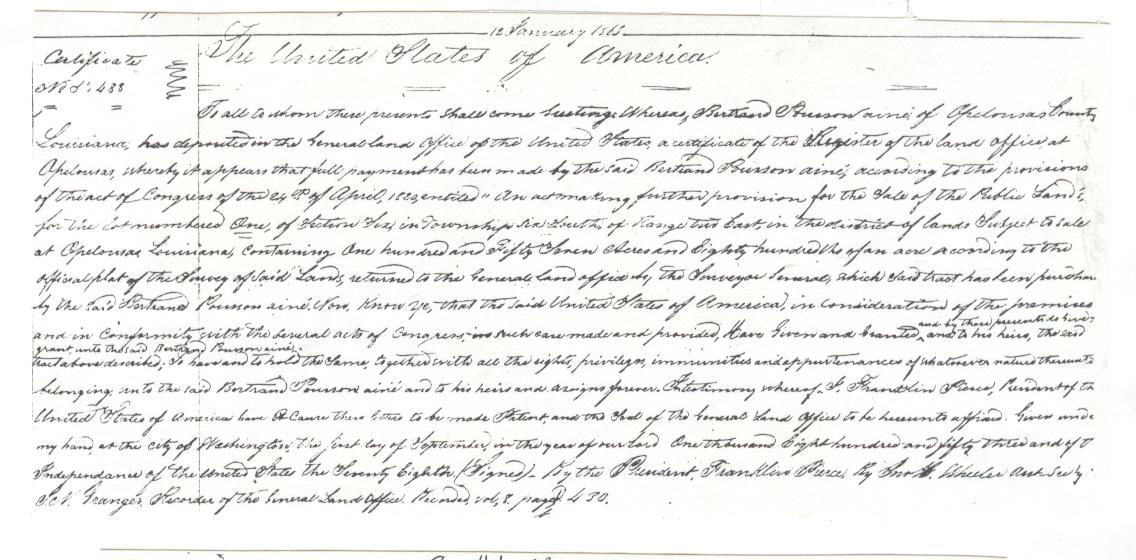 12 January 1865
The United States of America.
Certificate
No. 488
To all to whom these presents shall come Greeting: Whereas, Bertrand Pourson ainé, of Opelousas County
Louisiana, has deposited in the General land Office of the United States, a certificate of the Register of the land office at
Opelousas, whereby it appears that full payment has been made by the said Bertrand Pourson ainé, according to the provisions
of the act of Congress of the 24th of April, 1820, entitled "An act making further provision for the Sale of the Public Lands,
for the lot numbered One, of Section Six, in Township Six South, of Range two East, in the district of lands Subject to sale
at Opelousas Louisiana, containing One hundred and Fifty Seven Acres and Eighty hundredths of an acre according to the
official plat of the Survey of said Lands, returned to the General land office by the Surveyor General, which said tract has been purchas
by the said Bertrand Pourson ainé, Now, Know Ye, that the said United States of America, in consideration of the premises
and in Conformity with the several acts of Congress, in such case made and provided, Have Given and Granted, and by these presents do Give
grant, unto the said Bertrand Pourson ainé, and to his heirs, the said
tract above described; To have and to hold the same, together with all the rights, privileges, immunities and appurtenances of whatsoever nature thereunto
belonging, unto the said Bertrand Pourson ainé and to his heirs and assigns forever. In testimony whereof, I Franklin Pierce, President of th
United States of America have Caused these letters to be made Patent, and the Seal of the General Land Office to be hereunto affixed. Given unde
my hand, at the city of Washington, the first day of September, in the year of our Lord One thousand Eight hundred and fifty three and of t
Independance of the United States the Seventy Eighth. (Signed) By the President, Franklin Pierce, By Jno H. Wheeler Asst Secty
Granger, Recorder of the General Land Office. Recorded, vol, 8, page 430.